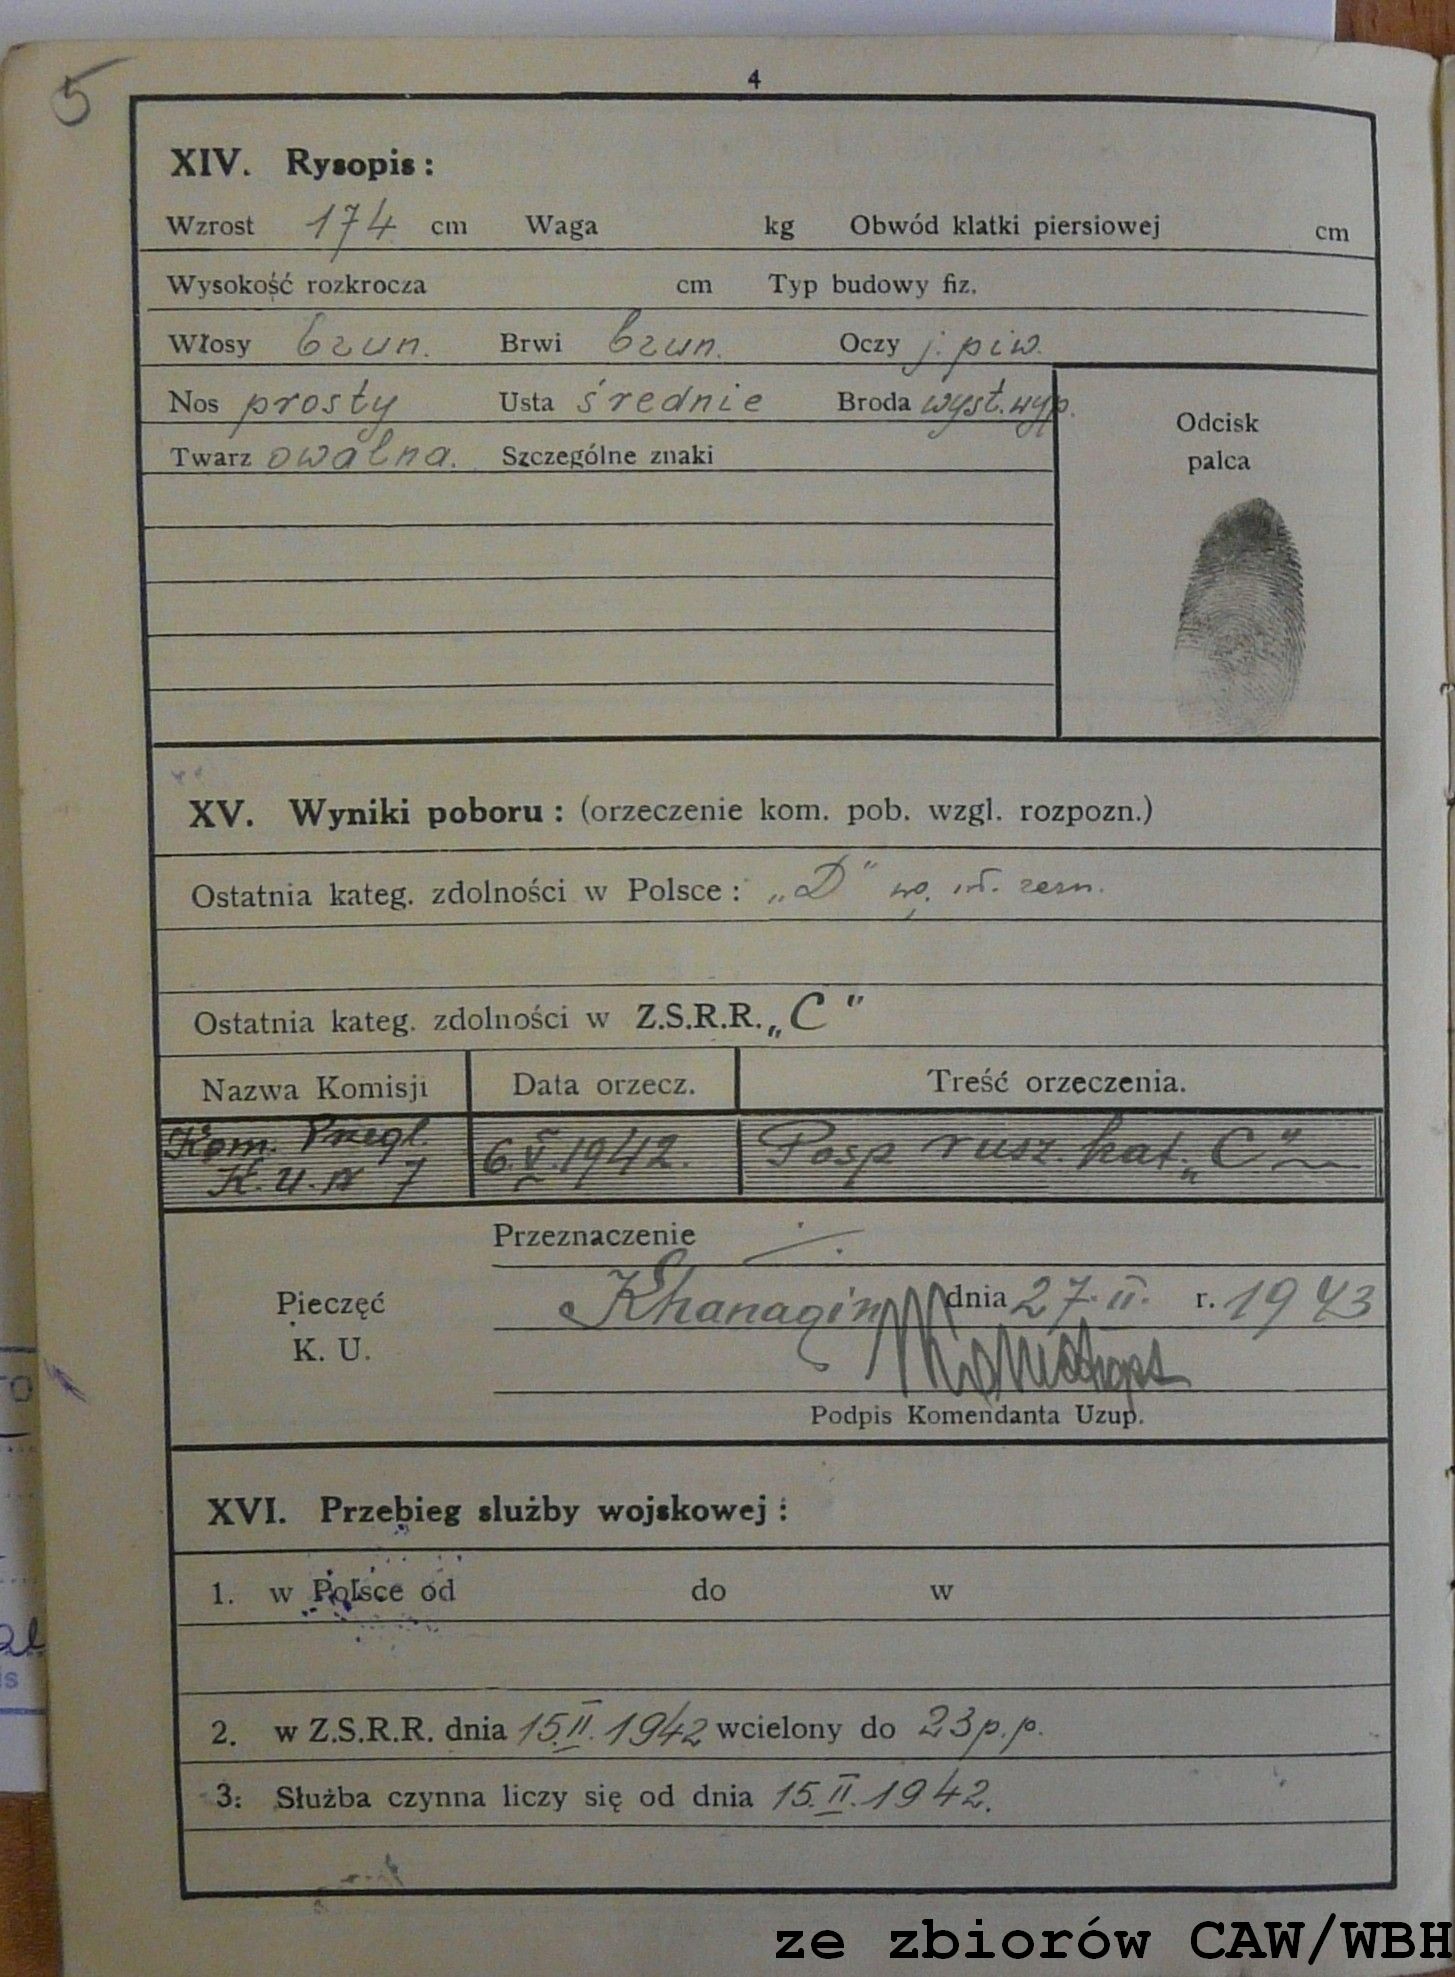 5
4
XIV. Rysopis:
Wzrost 174 cm Waga kg Obwód klatki piersiowej cm
Wysokość rozkrocza cm Typ budowy fiz.
Włosy bzun. Brwi bzun. Oczy j. piw.
Nos prosty Usta średnie Broda wyst. wyp.
Twarz owalna. Szczególne znaki
Odcisk
palca
XV. Wyniki poboru: (orzeczenie kom. pob. wzgl. rozpozn.)
Ostatnia kateg. zdolności w Polsce: „D" wg. zezn.
Ostatnia kateg. zdolności w Z.S.R.R. „C"
Nazwa Komisji Data orzecz. Treść orzeczenia.
Kom. Przegl. 6.V.1942. Posp rusz. kat. „C"
K.U. № 7
Przeznaczenie ./.
Khanaqin dnia 27.II. r. 1943
Pieczęć
K. U.
Podpis Komendanta Uzup.
XVI. Przebieg służby wojskowej:
1. w Polsce od do w
2. w Z.S.R.R. dnia 15.II.1942 wcielony do 23 p.p.
3. Służba czynna liczy się od dnia 15.II.1942.
ze zbiorów CAW/WBH